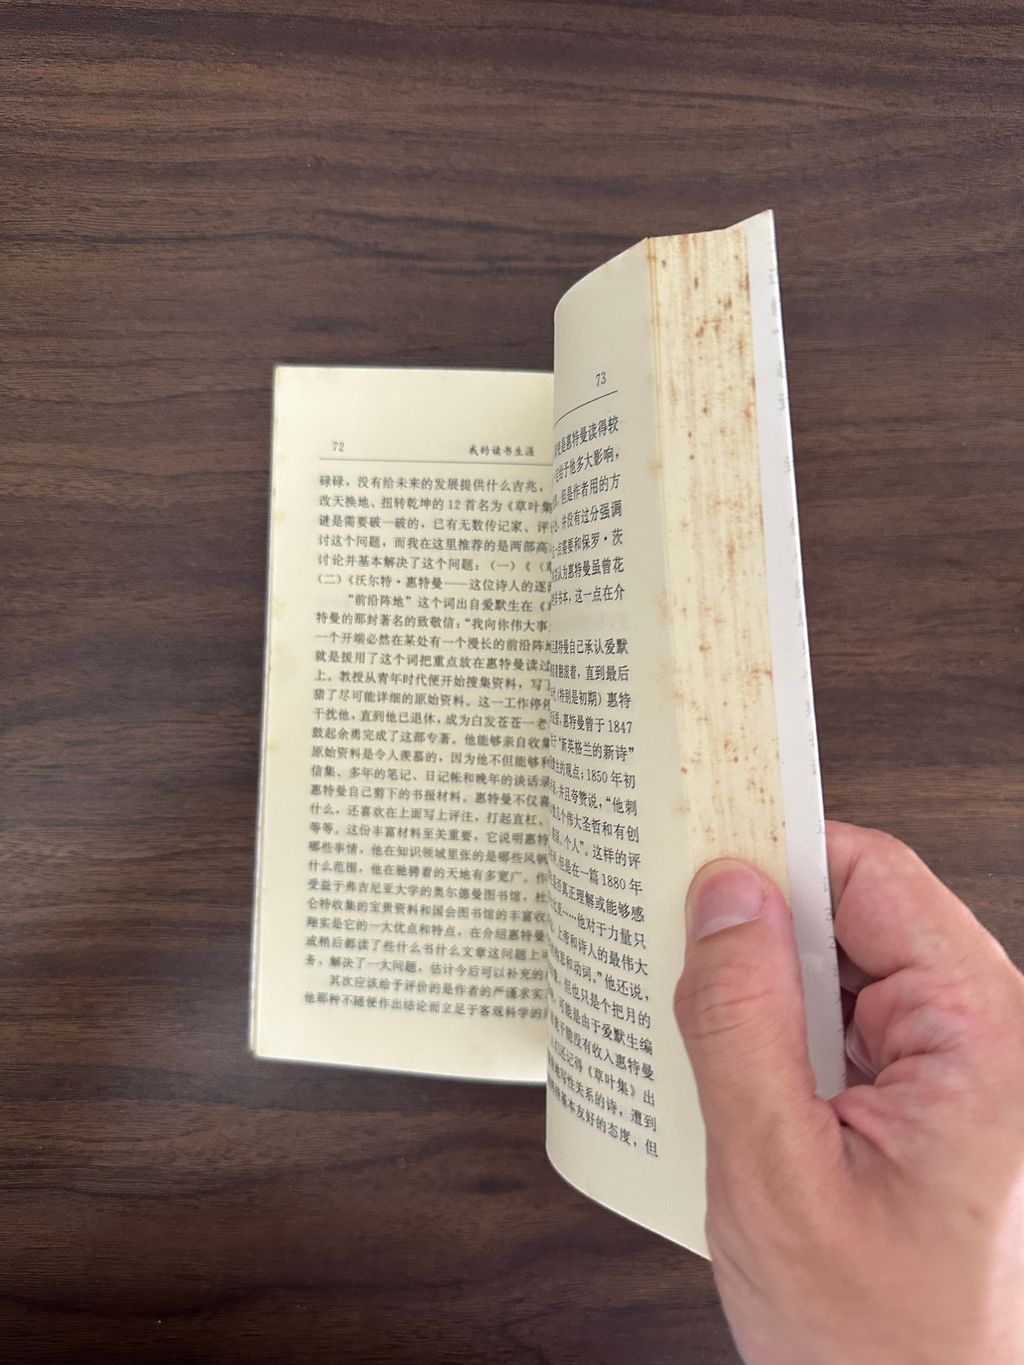 72
我的读书生涯
碌碌，没有给未来的发展提供什么吉兆，
改天换地、扭转乾坤的12首名为《草叶集
谜是需要破一破的，已有无数传记家、评
讨这个问题，而我在这里推荐的是两部高
讨论并基本解决了这个问题：（一）《
（二）《沃尔特·惠特曼——这位诗人的逐
“前沿阵地”这个词出自爱默生在《
特曼的那封著名的致敬信：“我向你伟大事
一个开端必然在某处有一个漫长的前沿阵地
就是援用了这个词把重点放在惠特曼读过
上。教授从青年时代便开始搜集资料，写了
猎了尽可能详细的原始资料。这一工作停停
干扰他，直到他已退休，成为白发苍苍一老
鼓起余勇完成了这部专著。他能够亲自收集
原始资料是令人羡慕的，因为他不但能够利
信集、多年的笔记、日记帐和晚年的谈话录
惠特曼自己剪下的书报材料。惠特曼不仅喜
什么，还喜欢在上面写上评注，打起直杠、
等等。这份丰富材料至关重要，它说明惠特
哪些事情，他在知识领域里张的是哪些风帆
什么范围，他在驰骋着的天地有多宽广。作
受益于弗吉尼亚大学的奥尔德曼图书馆，杜
仑特收集的宝贵资料和国会图书馆的丰富收
翔实是它的一大优点和特点，在介绍惠特曼
或稍后都读了些什么书什么文章这问题上
务，解决了一大问题，估计今后可以补充的
其次应该给予评价的是作者的严谨求实
他那种不随便作出结论而立足于客观科学的
73
是惠特曼读得较
给于他多大影响，
，但是作者用的方
，并没有过分强调
点需要和保罗·茨
认为惠特曼虽曾花
书本，这一点在介
惠特曼自己承认爱默
翻滚着，直到最后
代（特别是初期）惠特
，惠特曼曾于1847
于“新英格兰的新诗”
的观点；1850年初
，并且夸赞说，“他刺
几个伟大圣哲和有创
个人”。这样的评
，但是在一篇1880年
真正理解或能够感
……他对于力量只
，上帝和诗人的最伟大
和动词。”他还说，
但也只是个把月的
，可能是由于爱默生编
干脆没有收入惠特曼
还记得《草叶集》出
写性关系的诗，遭到
基本友好的态度，但